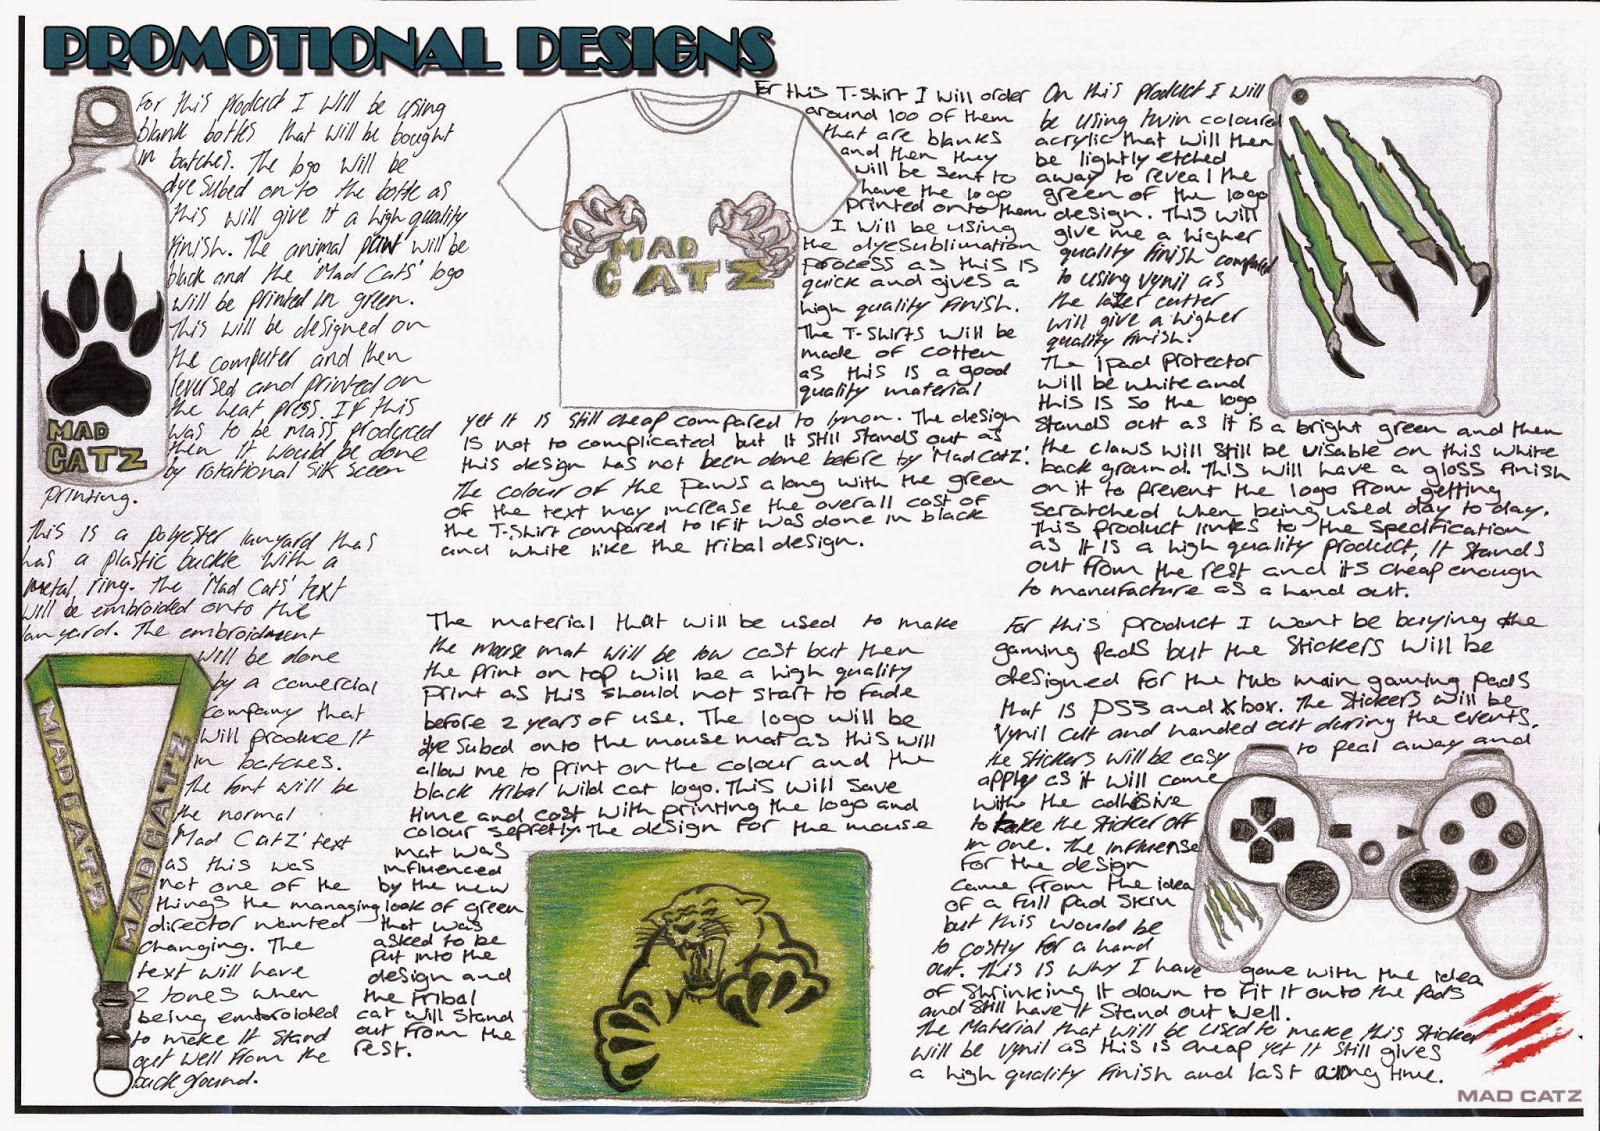 PROMOTIONAL DESIGNS
For this product I will be using
blank bottles that will be bought
in batches. The logo will be
dye subed on to the bottle as
this will give it a high quality
finish. The animal paw will be
black and the 'Mad Cats' logo
will be printed in green.
This will be designed on
the computer and then
reversed and printed on
the heat press. If this
was to be mass produced
then it would be done
by rotational silk sceen
printing.
MAD
CATZ
For this T-Shirt I will order
around 100 of them
that are blanks
and then they
will be sent to
have the logo
printed onto them
I will be using
the dyesublimation
process as this is
quick and gives a
high quality finish.
The T-Shirts will be
made of cotten
as this is a good
quality material
yet it is still cheap compared to lynon. The design
is not to complicated but it still stands out as
this design has not been done before by 'Mad Catz'.
The colour of the paws along with the green
of the text may increase the overall cost of
the T-Shirt compared to if it was done in black
and white like the tribal design.
MAD
CATZ
On this product I will
be using twin coloured
acrylic that will then
be lightly etched
away to reveal the
green of the logo
design. This will
give me a higher
quality finish compared
to using vynil as
the lazer cutter
will give a higher
quality finish.
The ipad protector
will be white and
this is so the logo
stands out as it is a bright green and then
the claws will still be visable on this white
back ground. This will have a gloss finish
on it to prevent the logo from getting
scratched when being used day to day.
This product links to the specification
as it is a high quality product, it stands
out from the rest and its cheap enough
to manufacture as a hand out.
This is a polyester lanyard that
has a plastic buckle with a
metal ring. The 'Mad Cats' text
will be embroided onto the
lanyard. The embroidment
will be done
by a comercial
company that
will produce it
in batches.
The font will be
the normal
'Mad Catz' text
as this was
not one of the
things the managing
director wanted
changing. The
text will have
2 tones when
being emboroided
to make it stand
out well from the
back ground.
MAD CATZ
MAD CATZ
The material that will be used to make
the mouse mat will be low cost but then
the print on top will be a high quality
print as this should not start to fade
before 2 years of use. The logo will be
dye subed onto the mouse mat as this will
allow me to print on the colour and the
black tribal wild cat logo. This will save
time and cost with printing the logo and
colour sepretly. The design for the mouse
mat was
influenced
by the new
look of green
that was
asked to be
put into the
design and
the tribal
cat will stand
out from the
rest.
For this product I wont be burying the
gaming pads but the stickers will be
designed for the two main gaming pads
that is PS3 and xbox. The stickers will be
vynil cut and handed out during the events.
the stickers will be easy to peal away and
apply as it will come
with the adhisive
to take the sticker off
in one. The influense
for the design
came from the idea
of a full pad skin
but this would be
to costly for a hand
out. This is why I have gone with the idea
of shrinking it down to fit it onto the pads
and still have it stand out well.
The Material that will be used to make this sticker
will be vynil as this is cheap yet it still gives
a high quality finish and last along time.
MAD CATZ